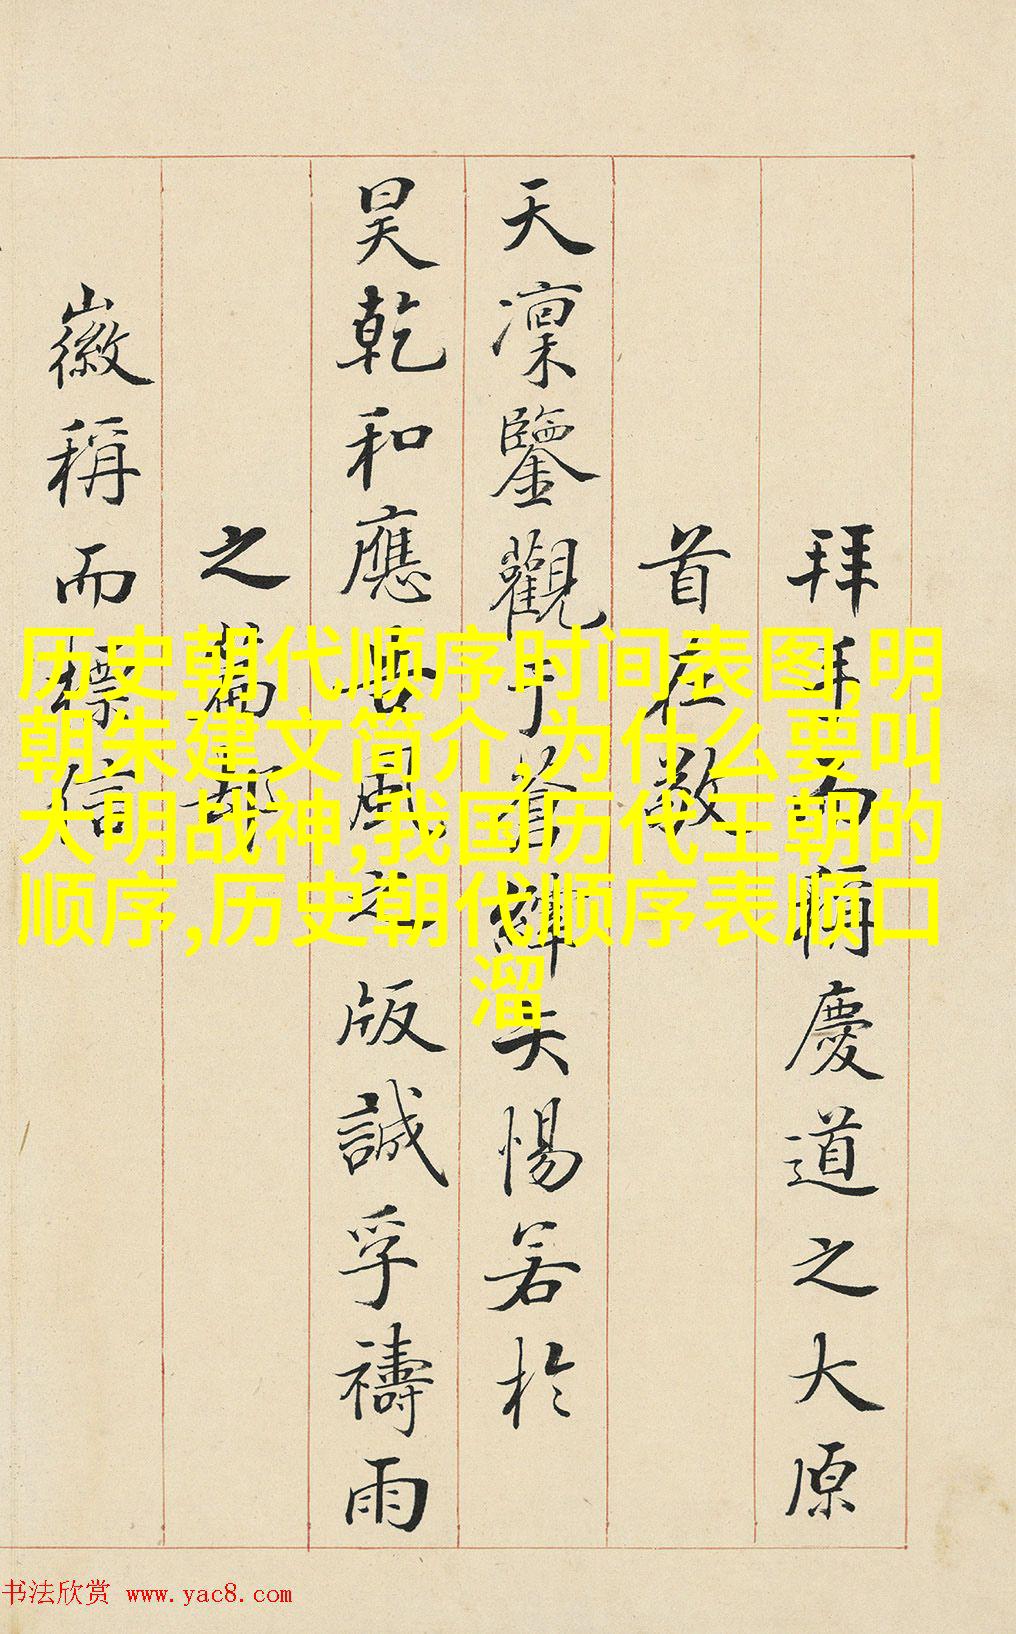 历史朝代顺序时间表图,明
朝朱建文简介,为什么要叫
大明战神,我国历代王朝的
顺序,历史朝代顺序表顺口
溜
拜拜稱慶道之大原
首在敬
天凜鑒觀于蒼惕若於
昊乾和應風之版誠孚禱雨
之篇
徽稱而標信
书法欣赏 www.yac8.com